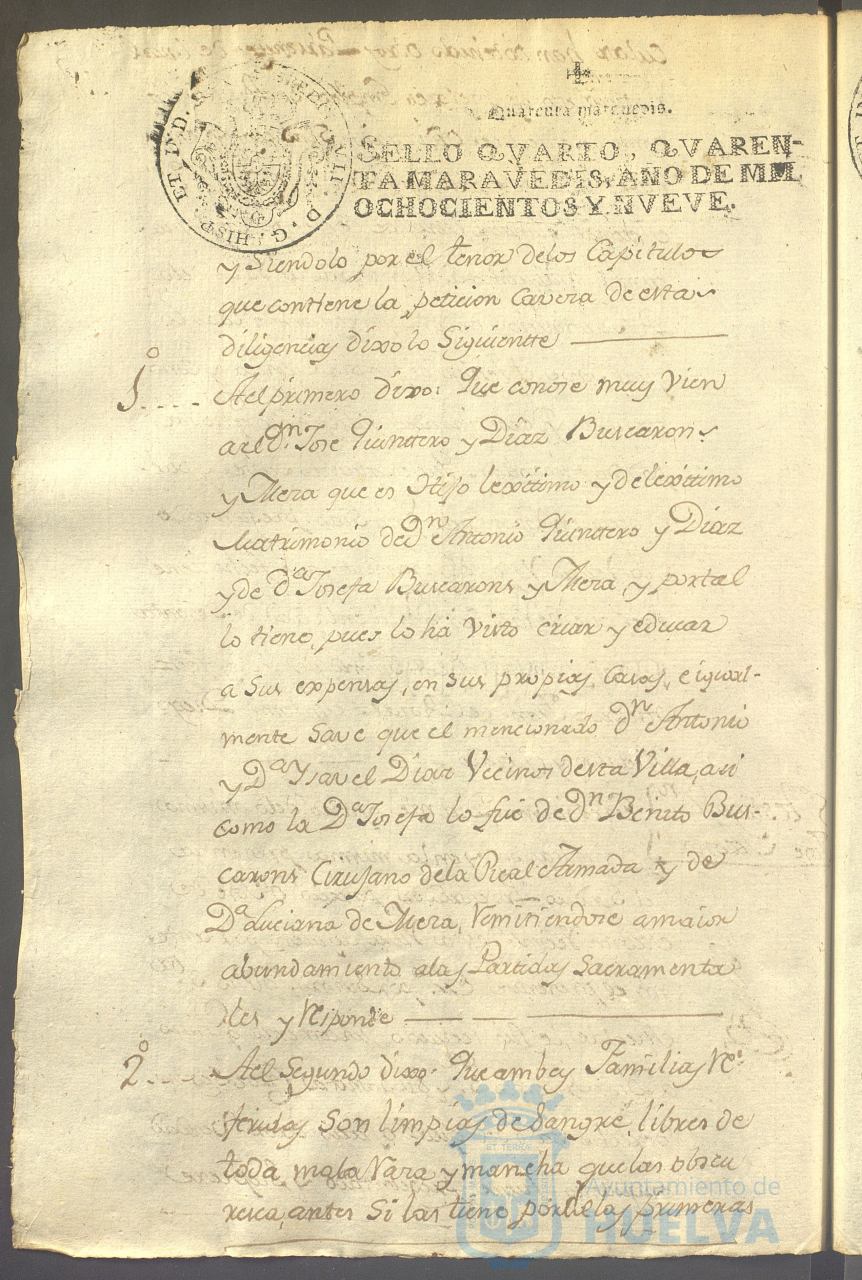 Quarenta maravedis.
SELLO QVARTO, QVAREN-
TA MARAVEDIS, AÑO DE MIL
OCHOCIENTOS Y NVEVE.
HISP. ET IND. R.
D. G.
y Siendolo por el tenor delos Capitulos
que contiene la peticion Cavera de estas
diligencias dixo lo Siguientte
1º.... Ael primero dixo: Que conose muy vien
a el Dn. Jose Quinttero y Diaz Buscarons
y Mera que es Hijo lexitimo y de lexitimo
Matrimonio de Dn Antonio Quinttero y Diaz
y de Da Josefa Buscarons y Mera, y por tal
lo tiene, pues lo há visto criar y educar
a Sus expensas, en sus propias Casas, e igual-
mente Save que el mencionado Dn Antonio
y Da Ysavel Diaz Vecinos desta Villa, asi
como la Da Josefa lo fue de Dn Benito Bus-
carons Cirujano dela Real Armada y de
Da Luciana de Mera, Remitiendose a maior
abundamiento alas Partidas Sacramenta
les y Responde
2º... Ael Segundo dixo: Que ambas Familias Re-
feridas Son limpias de Sangre, libres de
toda mala Rara y mancha que las obscu
resca, antes Si las tiene por de las primeras
Ayuntamiento de
HUELVA